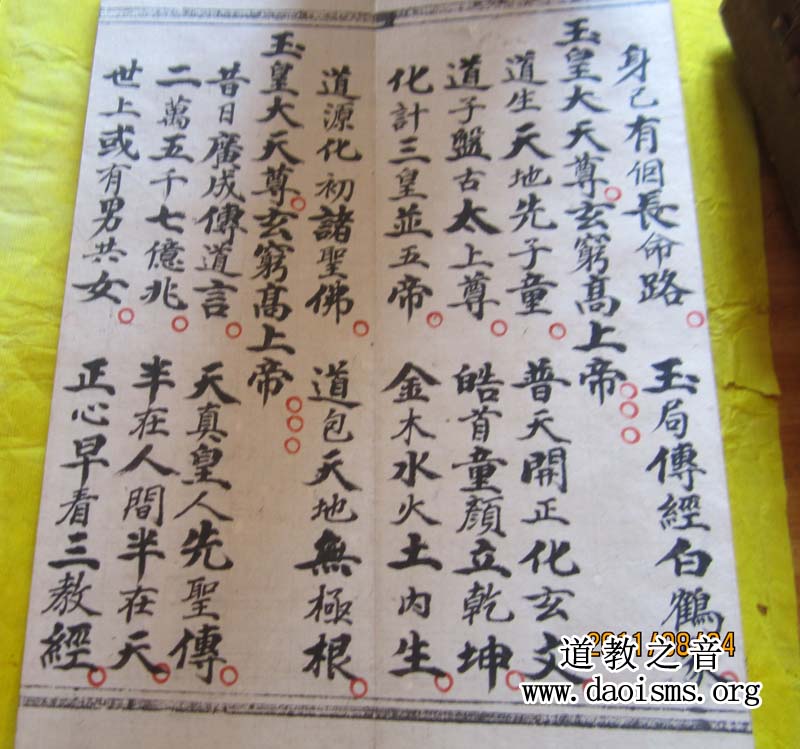 身己有個長命路 玉局傳經白鶴
玉皇大天尊玄窮高上帝
道生天地先子童 普天開正化玄文
道子盤古太上尊 皓首童顏立乾坤
化計三皇並五帝 金木水火土內生
道源化初諸聖佛 道包天地無極根
玉皇大天尊玄窮高上帝
昔日廣成傳道言 天真皇人先聖傳
二萬五千七億兆 半在人間半在天
世上或有男共女 正心早看三教經
2011/08/24
道教之音
www.daoisms.org